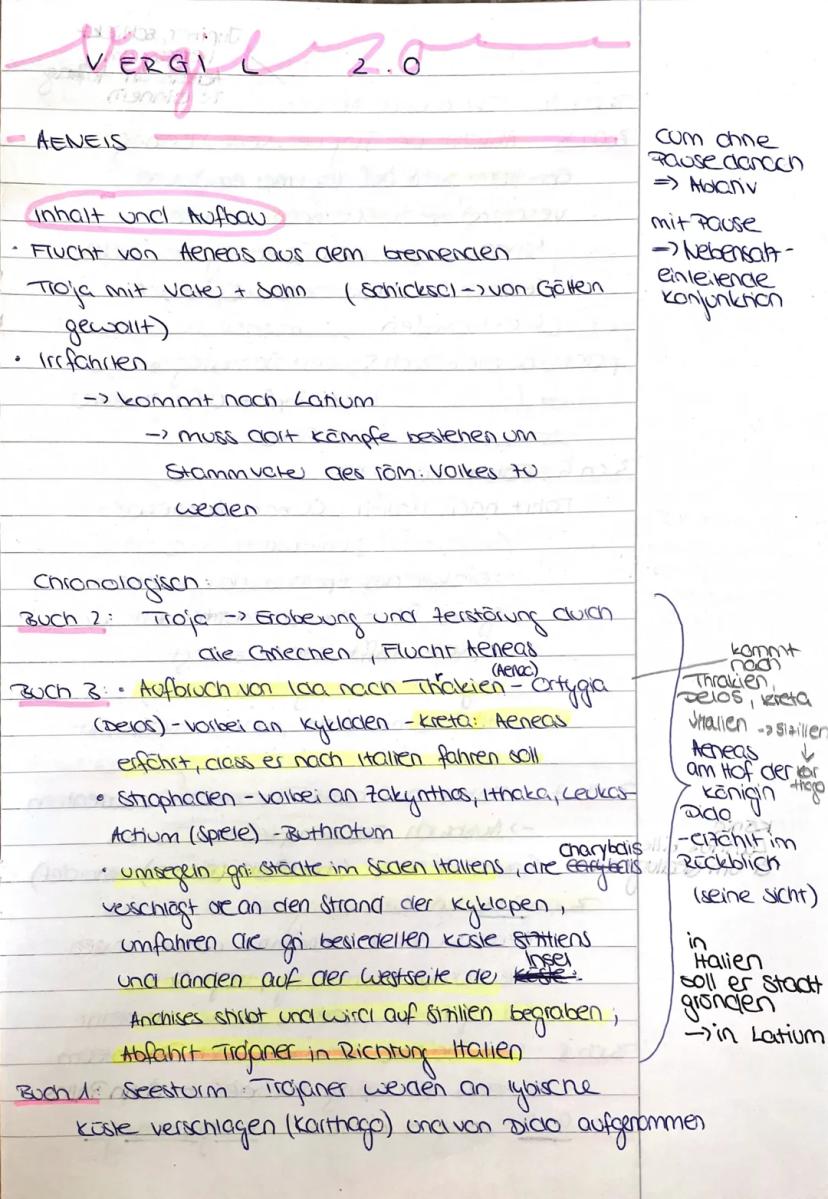 VERGIL 2.0
AENEIS
Inhalt und Aufbau
· Flucht von Aeneas aus dem brennenden
Troja mit Vater + Sohn (Schicksal -> von Göttern
gewollt)
· Irrfahrten
-> kommt nach Latium
-> muss dort Kämpfe bestehen um
Stammvater des röm. Volkes zu
werden
Chronologisch:
Buch 2: Troja -> Eroberung und Zerstörung durch
die Griechen, Flucht Aeneas
Buch 3: · Aufbruch von Ida nach Thrakien - Ortygia
(Delos) - vorbei an Kykladen - Kreta: Aeneas
erfährt, dass er nach Italien fahren soll
· Strophaden - vorbei an Zakynthos, Ithaka, Leukas-
Actium (Spiele) - Buthrotum
charybdis
· umsegeln gri. Städte im Süden Italiens, die
verschlägt sie an den Strand der Kyklopen,
umfahren die gri besiedelten Küste Siziliens
und landen auf der Westseite der Insel
Anchises stirbt und wird auf Sizilien begraben;
Abfahrt Trojaner in Richtung Italien
Buch 1: Seesturm: Trojaner werden an lybische
Küste verschlagen (Karthago) und von Dido aufgenommen
cum ohne
Pause danach
=> Ablativ
mit Pause
-> Nebensatz-
einleitende
Konjunktion
kommt
nach
Thrakien,
Delos, Kreta
Italien -> Sizilien
Aeneas
am Hof der
Karthago
Königin
Dido
- erzählt im
Rückblick
(seine Sicht)
in
Italien
soll er Stadt
gründen
-> in Latium